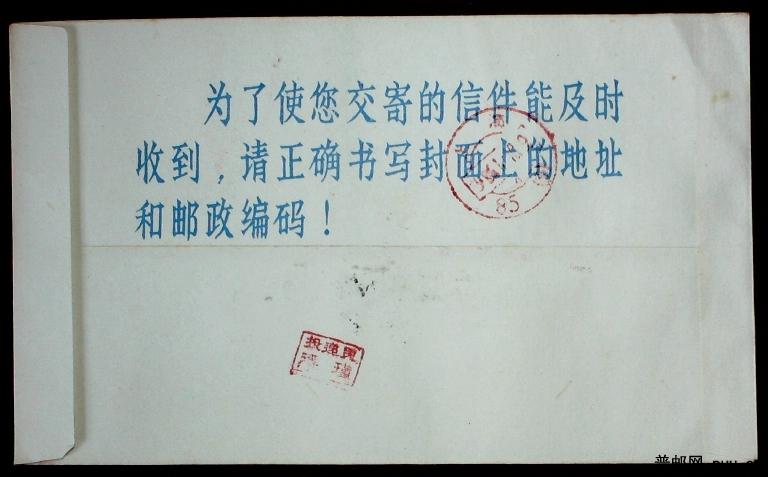 为了使您交寄的信件能及时
收到，请正确书写封面上的地址
和邮政编码！
85
投递员
普邮网